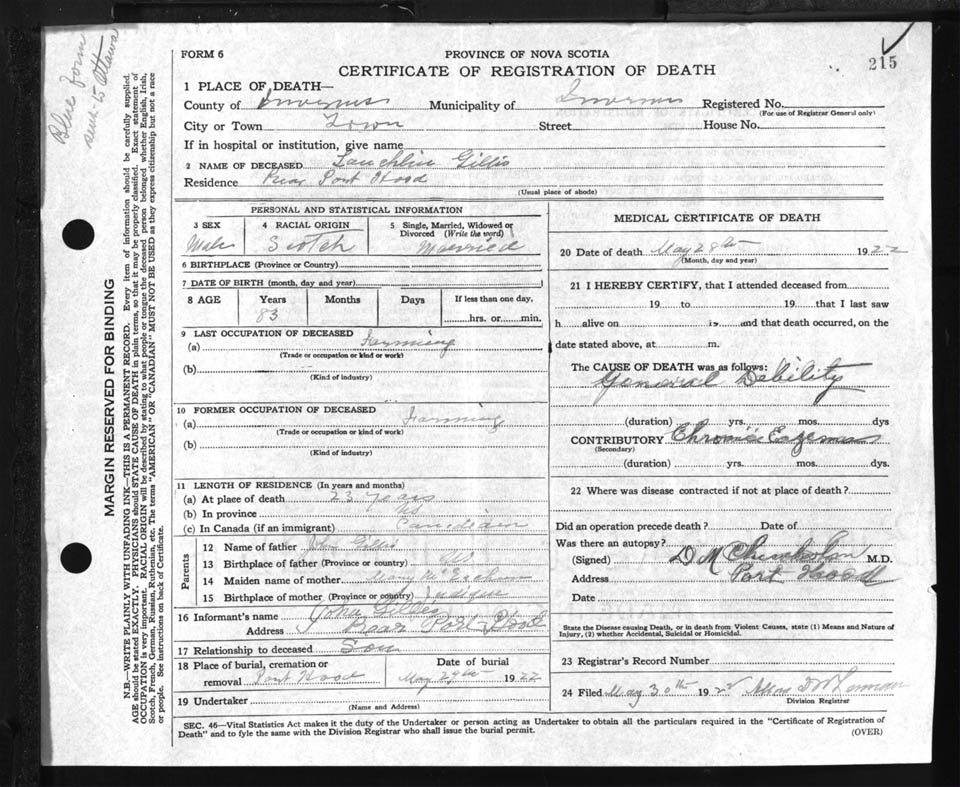 Blue form
sent to Ottawa
215
FORM 6
PROVINCE OF NOVA SCOTIA
CERTIFICATE OF REGISTRATION OF DEATH
1 PLACE OF DEATH—
County of Inverness Municipality of Inverness Registered No.
(For use of Registrar General only)
City or Town Town Street House No.
If in hospital or institution, give name
2 NAME OF DECEASED Lauchlin Gillis
Residence Rear Port Hood
(Usual place of abode)
MARGIN RESERVED FOR BINDING
N.B.—WRITE PLAINLY WITH UNFADING INK—THIS IS A PERMANENT RECORD. Every item of information should be carefully supplied.
AGE should be stated EXACTLY. PHYSICIANS should STATE CAUSE OF DEATH in plain terms, so that it may be properly classified. Exact statement of
OCCUPATION is very important. RACIAL ORIGIN will be described by stating to what people or tongue the deceased person belonged whether English, Irish,
Scotch, French, German, Russian, Ruthenian, etc. The terms "AMERICAN" or "CANADIAN" MUST NOT BE USED as they express citizenship but not a race
or people. See instructions on back of Certificate.
PERSONAL AND STATISTICAL INFORMATION
3 SEX
Male
4 RACIAL ORIGIN
Scotch
5 Single, Married, Widowed or
Divorced (Write the word)
Married
6 BIRTHPLACE (Province or Country)
7 DATE OF BIRTH (month, day and year)
8 AGE Years Months Days If less than one day,
83 hrs. or min.
9 LAST OCCUPATION OF DECEASED
(a) Farming
(Trade or occupation or kind or work)
(b)
(Kind of industry)
10 FORMER OCCUPATION OF DECEASED
(a) Farming
(Trade or occupation or kind of work)
(b)
(Kind of industry)
11 LENGTH OF RESIDENCE (In years and months)
(a) At place of death 23 years
(b) In province NS
(c) In Canada (if an immigrant) Canadian
Parents
12 Name of father John Gillis
13 Birthplace of father (Province or country)
14 Maiden name of mother Mary McEachern
15 Birthplace of mother (Province or country) Judique
16 Informant's name John Gillis
Address Rear Port Hood
17 Relationship to deceased Son
18 Place of burial, cremation or
removal Port Hood
Date of burial
May 29th 1922
19 Undertaker
(Name and Address)
MEDICAL CERTIFICATE OF DEATH
20 Date of death May 28th 1922
(Month, day and year)
21 I HEREBY CERTIFY, that I attended deceased from
19 to 19 that I last saw
h alive on 19 and that death occurred, on the
date stated above, at m.
The CAUSE OF DEATH was as follows:
General Debility
(duration) yrs. mos. dys
CONTRIBUTORY Chronic Eczema
(Secondary)
(duration) yrs. mos. dys.
22 Where was disease contracted if not at place of death?
Did an operation precede death? Date of
Was there an autopsy?
(Signed) D M Chisholm M.D.
Address Port Hood
Date
State the Disease causing Death, or in death from Violent Causes, state (1) Means and Nature of
Injury, (2) whether Accidental, Suicidal or Homicidal.
23 Registrar's Record Number
24 Filed May 30th 1922
Division Registrar
SEC. 46—Vital Statistics Act makes it the duty of the Undertaker or person acting as Undertaker to obtain all the particulars required in the "Certificate of Registration of
Death" and to fyle the same with the Division Registrar who shall issue the burial permit.
(OVER)